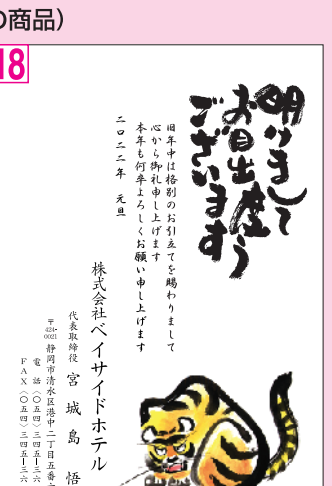 の商品）
18
明けまして
お目出度う
ございます
旧年中は格別のお引立てを賜わりまして
心から御礼申し上げます
本年も何卒よろしくお願い申し上げます
二〇二二年　元旦
株式会社ベイサイドホテル
代表取締役　宮城島　悟
〒424-0021 静岡市清水区港中二丁目五番六
電話〈〇五四〉三四五―三六
ＦＡＸ〈〇五四〉三四五―三六